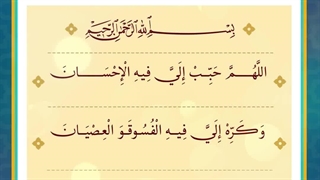 بِسْمِ اللهِ الرَّحْمٰنِ الرَّحِيْمِ
اَللَّهُمَّ حَبِّبْ إِلَيَّ فِيهِ الْإِحْسَانَ
وَكَرِّهْ إِلَيَّ فِيهِ الْفُسُوقَوَ الْعِصْيَانَ